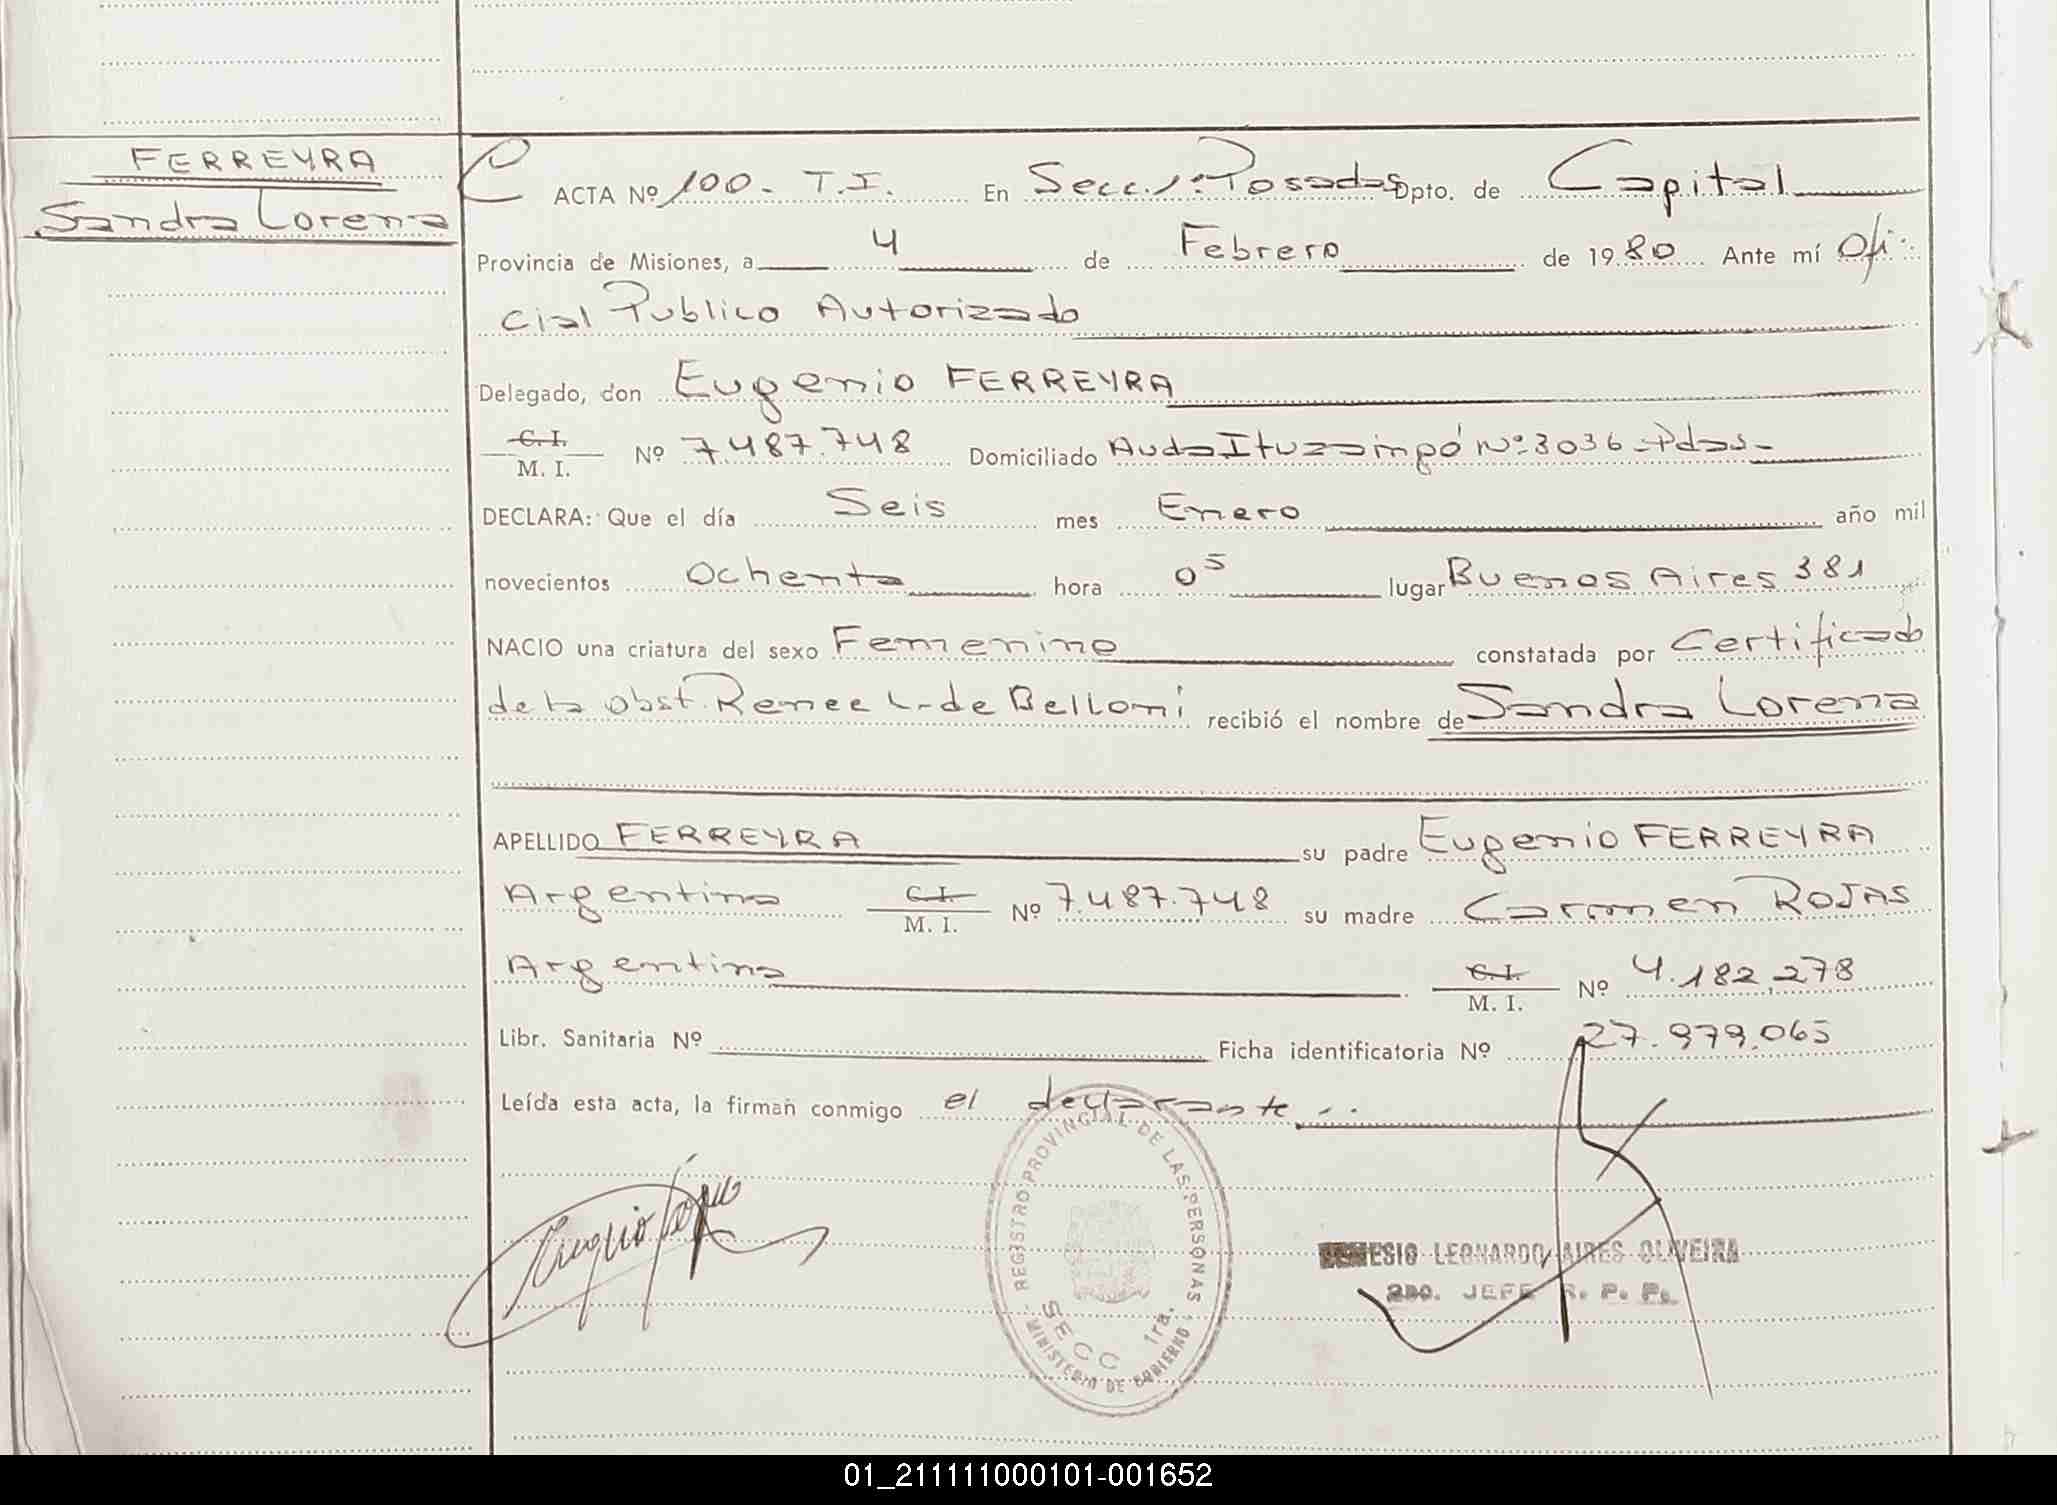 FERREYRA
Sandra Lorena
ACTA Nº 100 - T.I. En Secc. 1ª Posadas Dpto. de Capital
Provincia de Misiones, a 4 de Febrero de 1980 Ante mí Ofi-
cial Publico Autorizado
Delegado, don Eugenio FERREYRA
C. I.
M. I. Nº 7.487.748 Domiciliado Avda Ituzaingó Nº 3036 - Pdas -
DECLARA: Que el día Seis mes Enero año mil
novecientos Ochenta hora 05 lugar Buenos Aires 381
NACIO una criatura del sexo Femenino constatada por Certificado
de la Obst. Renee L. de Belloni recibió el nombre de Sandra Lorena
APELLIDO FERREYRA su padre Eugenio FERREYRA
Argentino C.I. M. I. Nº 7.487.748 su madre Carmen ROJAS
Argentina C.I. M. I. Nº 4.182.278
Libr. Sanitaria Nº Ficha identificatoria Nº 27.979.065
Leída esta acta, la firman conmigo el declarante..
REGISTRO PROVINCIAL DE LAS PERSONAS
SECC 1ra.
MINISTERIO DE GOBIERNO
LEONARDO AIRES OLIVEIRA
2DO. JEFE R. P. P.
01_211111000101-001652